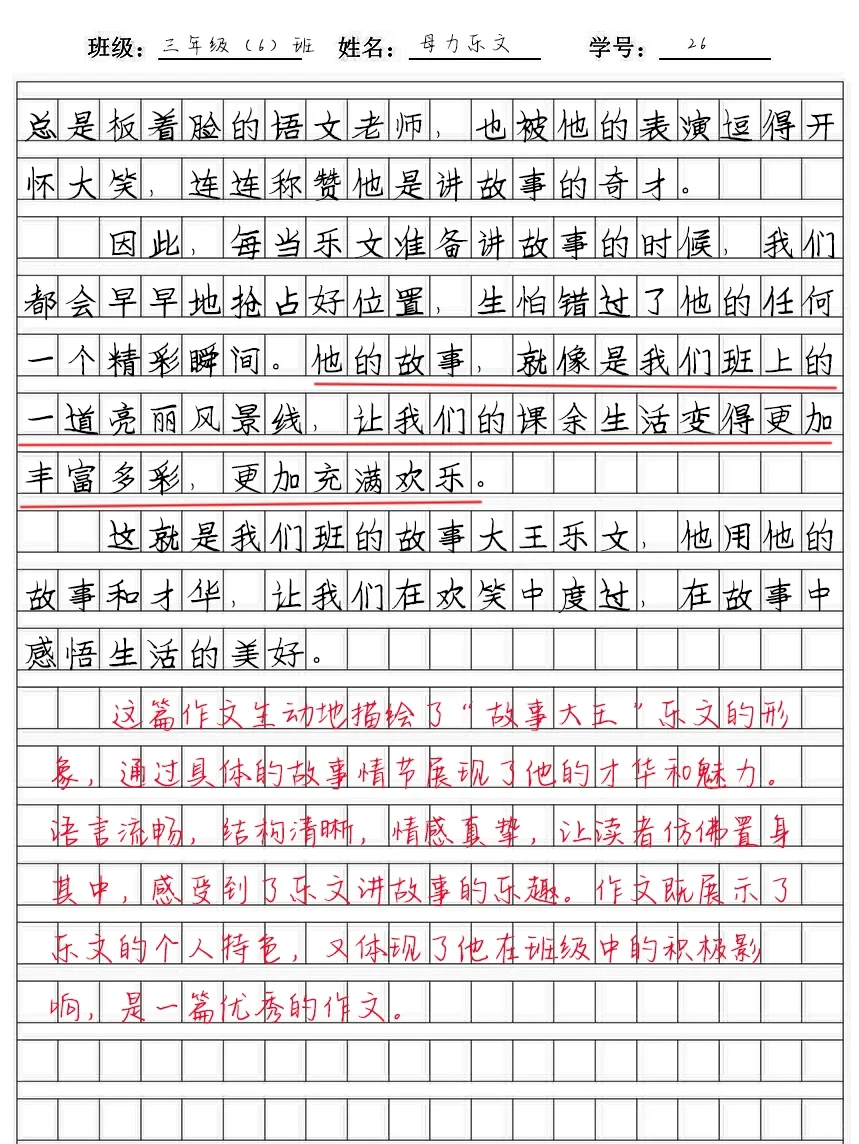 班级：三年级（6）班 姓名：母力乐文 学号：26
总是板着脸的语文老师，也被他的表演逗得开
怀大笑，连连称赞他是讲故事的奇才。
因此，每当乐文准备讲故事的时候，我们
都会早早地抢占好位置，生怕错过了他的任何
一个精彩瞬间。他的故事，就像是我们班上的
一道亮丽风景线，让我们的课余生活变得更加
丰富多彩，更加充满欢乐。
这就是我们班的故事大王乐文，他用他的
故事和才华，让我们在欢笑中度过，在故事中
感悟生活的美好。
这篇作文生动地描绘了“故事大王”乐文的形
象，通过具体的故事情节展现了他的才华和魅力。
语言流畅，结构清晰，情感真挚，让读者仿佛置身
其中，感受到了乐文讲故事的乐趣。作文既展示了
乐文的个人特色，又体现了他在班级中的积极影
响，是一篇优秀的作文。